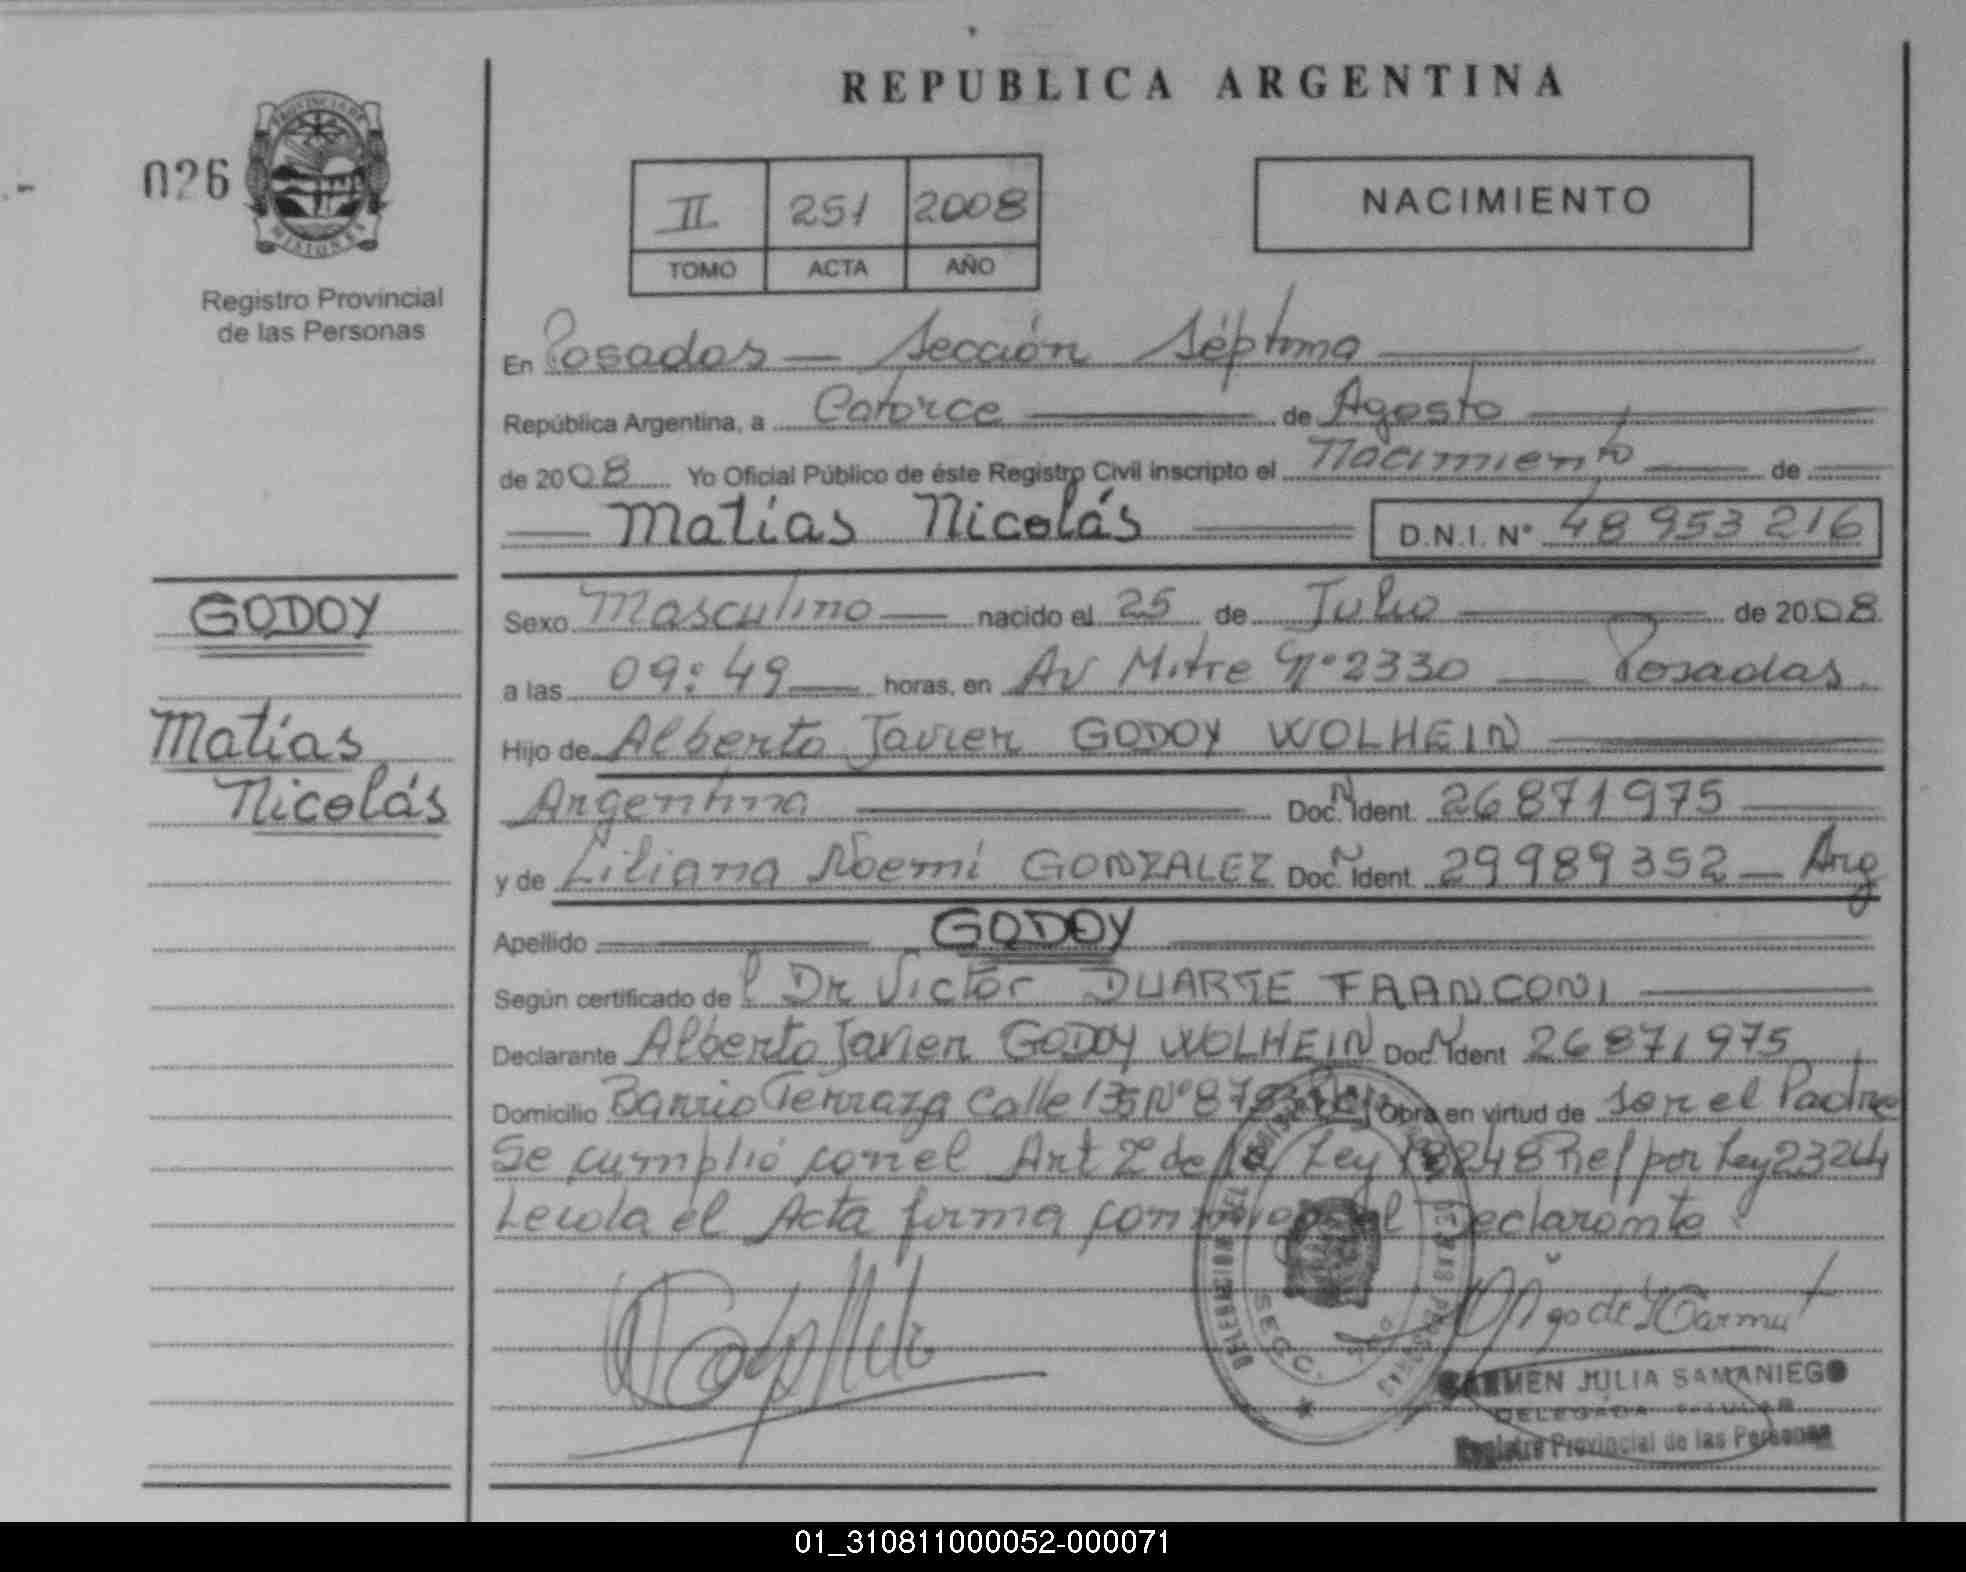 REPUBLICA ARGENTINA
026
PROVINCIA DE
MISIONES
Registro Provincial
de las Personas
II 251 2008
TOMO ACTA AÑO
NACIMIENTO
En Posadas — Sección Séptima
República Argentina, a Catorce de Agosto
de 2008 Yo Oficial Público de éste Registro Civil inscripto el Nacimiento de
Matías Nicolás D.N.I. N° 48 953 216
GODOY
Matías
Nicolás
Sexo Masculino nacido el 25 de Julio de 2008
a las 09:49 horas, en Av Mitre Nº 2330 — Posadas
Hijo de Alberto Javier GODOY WOLHEIN
Argentina Doc. N Ident. 26871975
y de Liliana Noemí GONZALEZ Doc. N Ident. 29989352 — Arg
Apellido GODOY
Según certificado de l Dr Victor DUARTE FRANCONI
Declarante Alberto Javier GODOY WOLHEIN Doc N Ident 26871975
Domicilio Barrio Terraza Calle 135 Nº Obra en virtud de ser el Padre
Se cumplió con el Art 2 de la Ley 18248 Ref por Ley 23264
Leida el Acta firma conmigo el Declarante
SECC.
CARMEN JULIA SAMANIEGO
DELEGADA TITULAR
Registro Provincial de las Personas
01_310811000052-000071